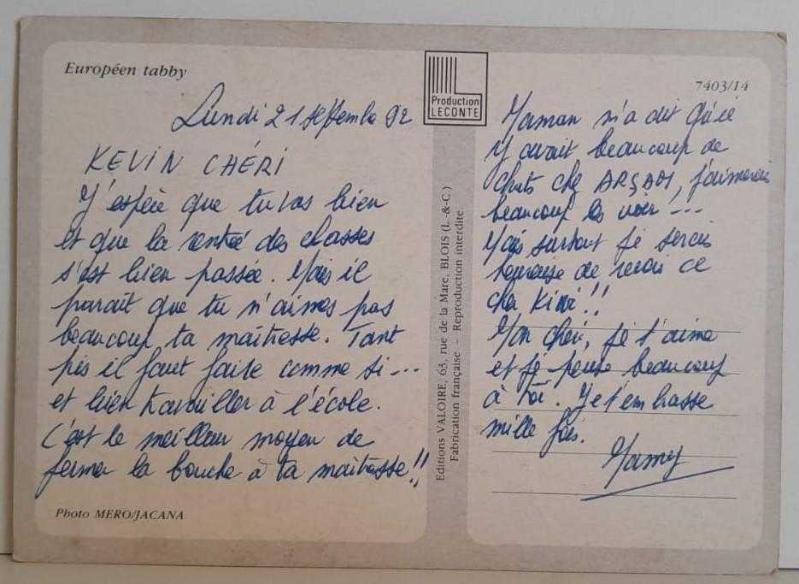 Européen tabby
Lundi 21 septembre 92
KEVIN CHÉRI
J'espère que tu vas bien
et que la rentrée des classes
s'est bien passée. Mais il
parait que tu n'aimes pas
beaucoup ta maîtresse. Tant
pis il faut faire comme si...
et bien travailler à l'école.
C'est le meilleur moyen de
fermer la bouche à ta maîtresse!!
Photo MERO/JACANA
Production
LECONTE
Editions VALOIRE, 63, rue de la Mare, BLOIS (L.-&-C.)
Fabrication française - Reproduction interdite
7403/14
Maman m'a dit qu'il
y avait beaucoup de
chats chez, j'aimerais
beaucoup les voir...
Mais surtout je serais
heureuse de revoir ce
cher Kiki!!
Mon chéri, je t'aime
et je pense beaucoup
à toi. Je t'embrasse
mille fois.
Mamy